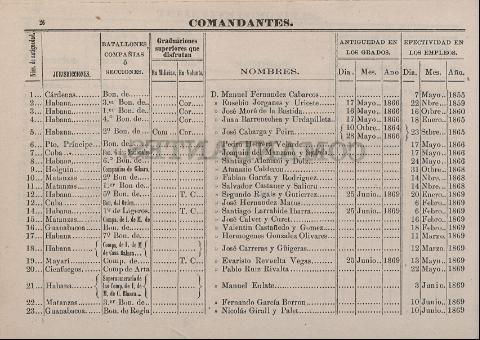 26
COMANDANTES.
Núm. de antigüedad.
JURISDICCIONES.
BATALLONES COMPAÑIAS ó SECCIONES.
Graduaciones superiores que disfrutan
En Milicias. En Volunt.
NOMBRES.
ANTIGUEDAD EN LOS GRADOS.
Dia. Mes. Año
EFECTIVIDAD EN LOS EMPLEOS.
Dia. Mes. Año.
1... Cárdenas.. Bon. de.. D. Manuel Fernandez Cabarcos 7 Mayo.. 1855
2... Habana.. 3.er Bon. de.. Cor... » Eusebio Jorganes y Urioste 17 Mayo.. 1866 22 Nbre.. 1859
3... Habana.. 1.er Bon. de.. Cor... » José Morá de la Bastida 16 Mayo.. 1866 16 Otbre.. 1860
4... Habana.. 4.º Bon. de.. Cor... » Juan Barrenechea y 17 Mayo.. 1866 18 Enero.. 1865
5... Habana.. 2º Bon. de.. Com... Cor... » José Cabarga y Peira 10 Otbre. 1864 28 Mayo.. 1866 23 Stbre.. 1865
6... Pto. Príncipe.. Bon. de.. 17 Mayo.. 1866
7... Cuba.. 17 Mayo.. 1866
8... Habana.. 6.º Bon. de.. » Santiago Alemani y Dulz 24 Mayo.. 1866
9... Holguin.. Compañías de Gibara. » Atanasio Calderon 31 Otbre.. 1868
10... Matanzas.. 2º Bon. de.. » Fabian García y Rodriguez 14 Nbre.. 1868
11... Matanzas.. 1.er Bon. de.. » Salvador Castaner y Saliera 14 Nbre.. 1868
12... Habana.. 5º Bon. de.. T. C... » Segundo Rigals y Gutierrez 25 Junio.. 1869 20 Enero.. 1869
13... Cuba.. Bon. del Orden. » José Hernandez Matos 6 Febro.. 1869
14... Habana.. 1º de Ligeros. T. C... » Santiago Larrahide Ibarra 25 Junio.. 1869 6 Febro.. 1869
15... Matanzas.. Comps. de I. de M. de » José Calvet y Coret 6 Febro.. 1869
16... Guanabacoa.. Bon. de.. » Valentin Castañedo y Gomez 18 Febro.. 1869
17... Habana.. 7º Bon. de.. » Hermógenes Gonzalez Olivares 13 Marzo.. 1869
18... Habana.. Comp. de I. de M. de Casa Blanca.. » José Carreras y Güigeras 12 Marzo.. 1869
19... Mayari.. Comp. de.. T. C... » Evaristo Revuelta Vegas 25 Junio.. 1869 13 Mayo.. 1869
20... Cienfuegos.. Comp. de Arta » Pablo Ruiz Rivalta 22 Mayo.. 1869
21... Habana.. » Manuel Enlate 3 Junio.. 1869
22... Matanzas.. 3.er Bon. de.. » Fernando García Borron 10 Junio.. 1869
23... Guanabacoa.. Bon. de Regla » Nicolás Girull y Palet 10 Junio.. 1869